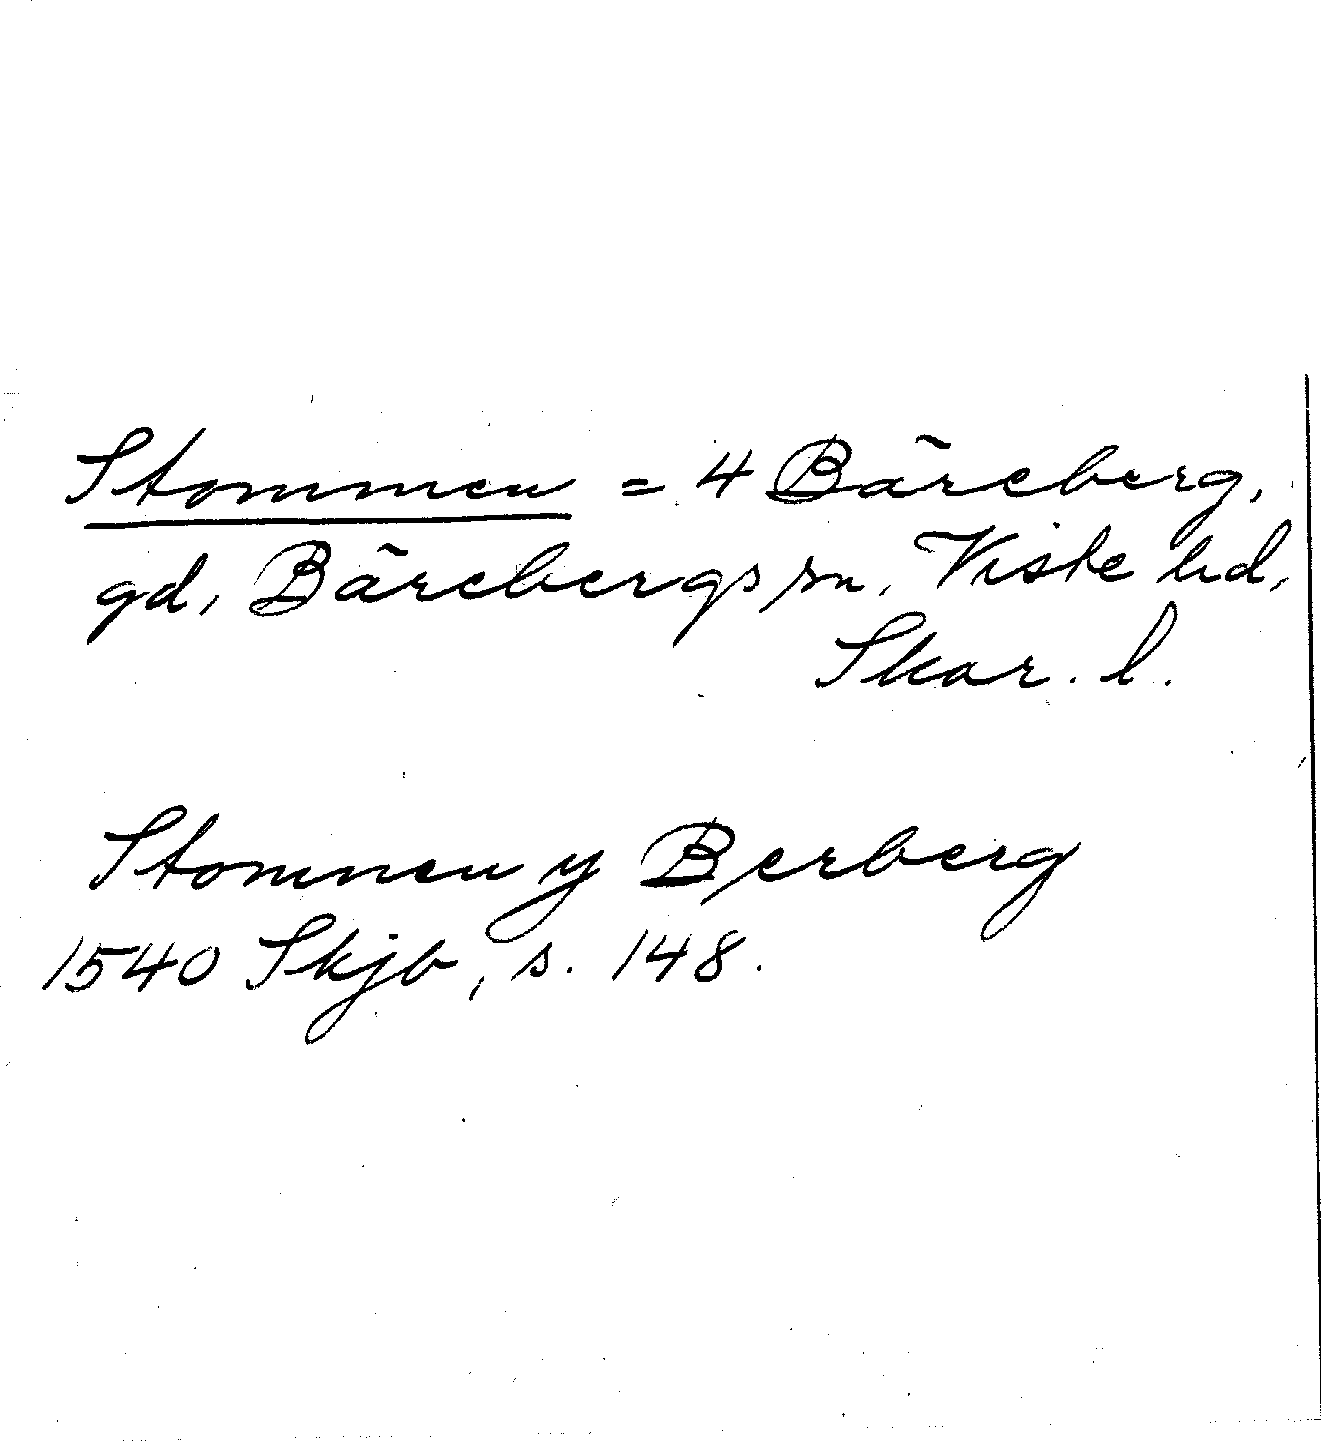 Stommen = 4 Bäreberg,
gd, Bärebergs sn, Viste hd,
Skar. l.
Stommen y Berberg
1540 Skjb, s. 148.